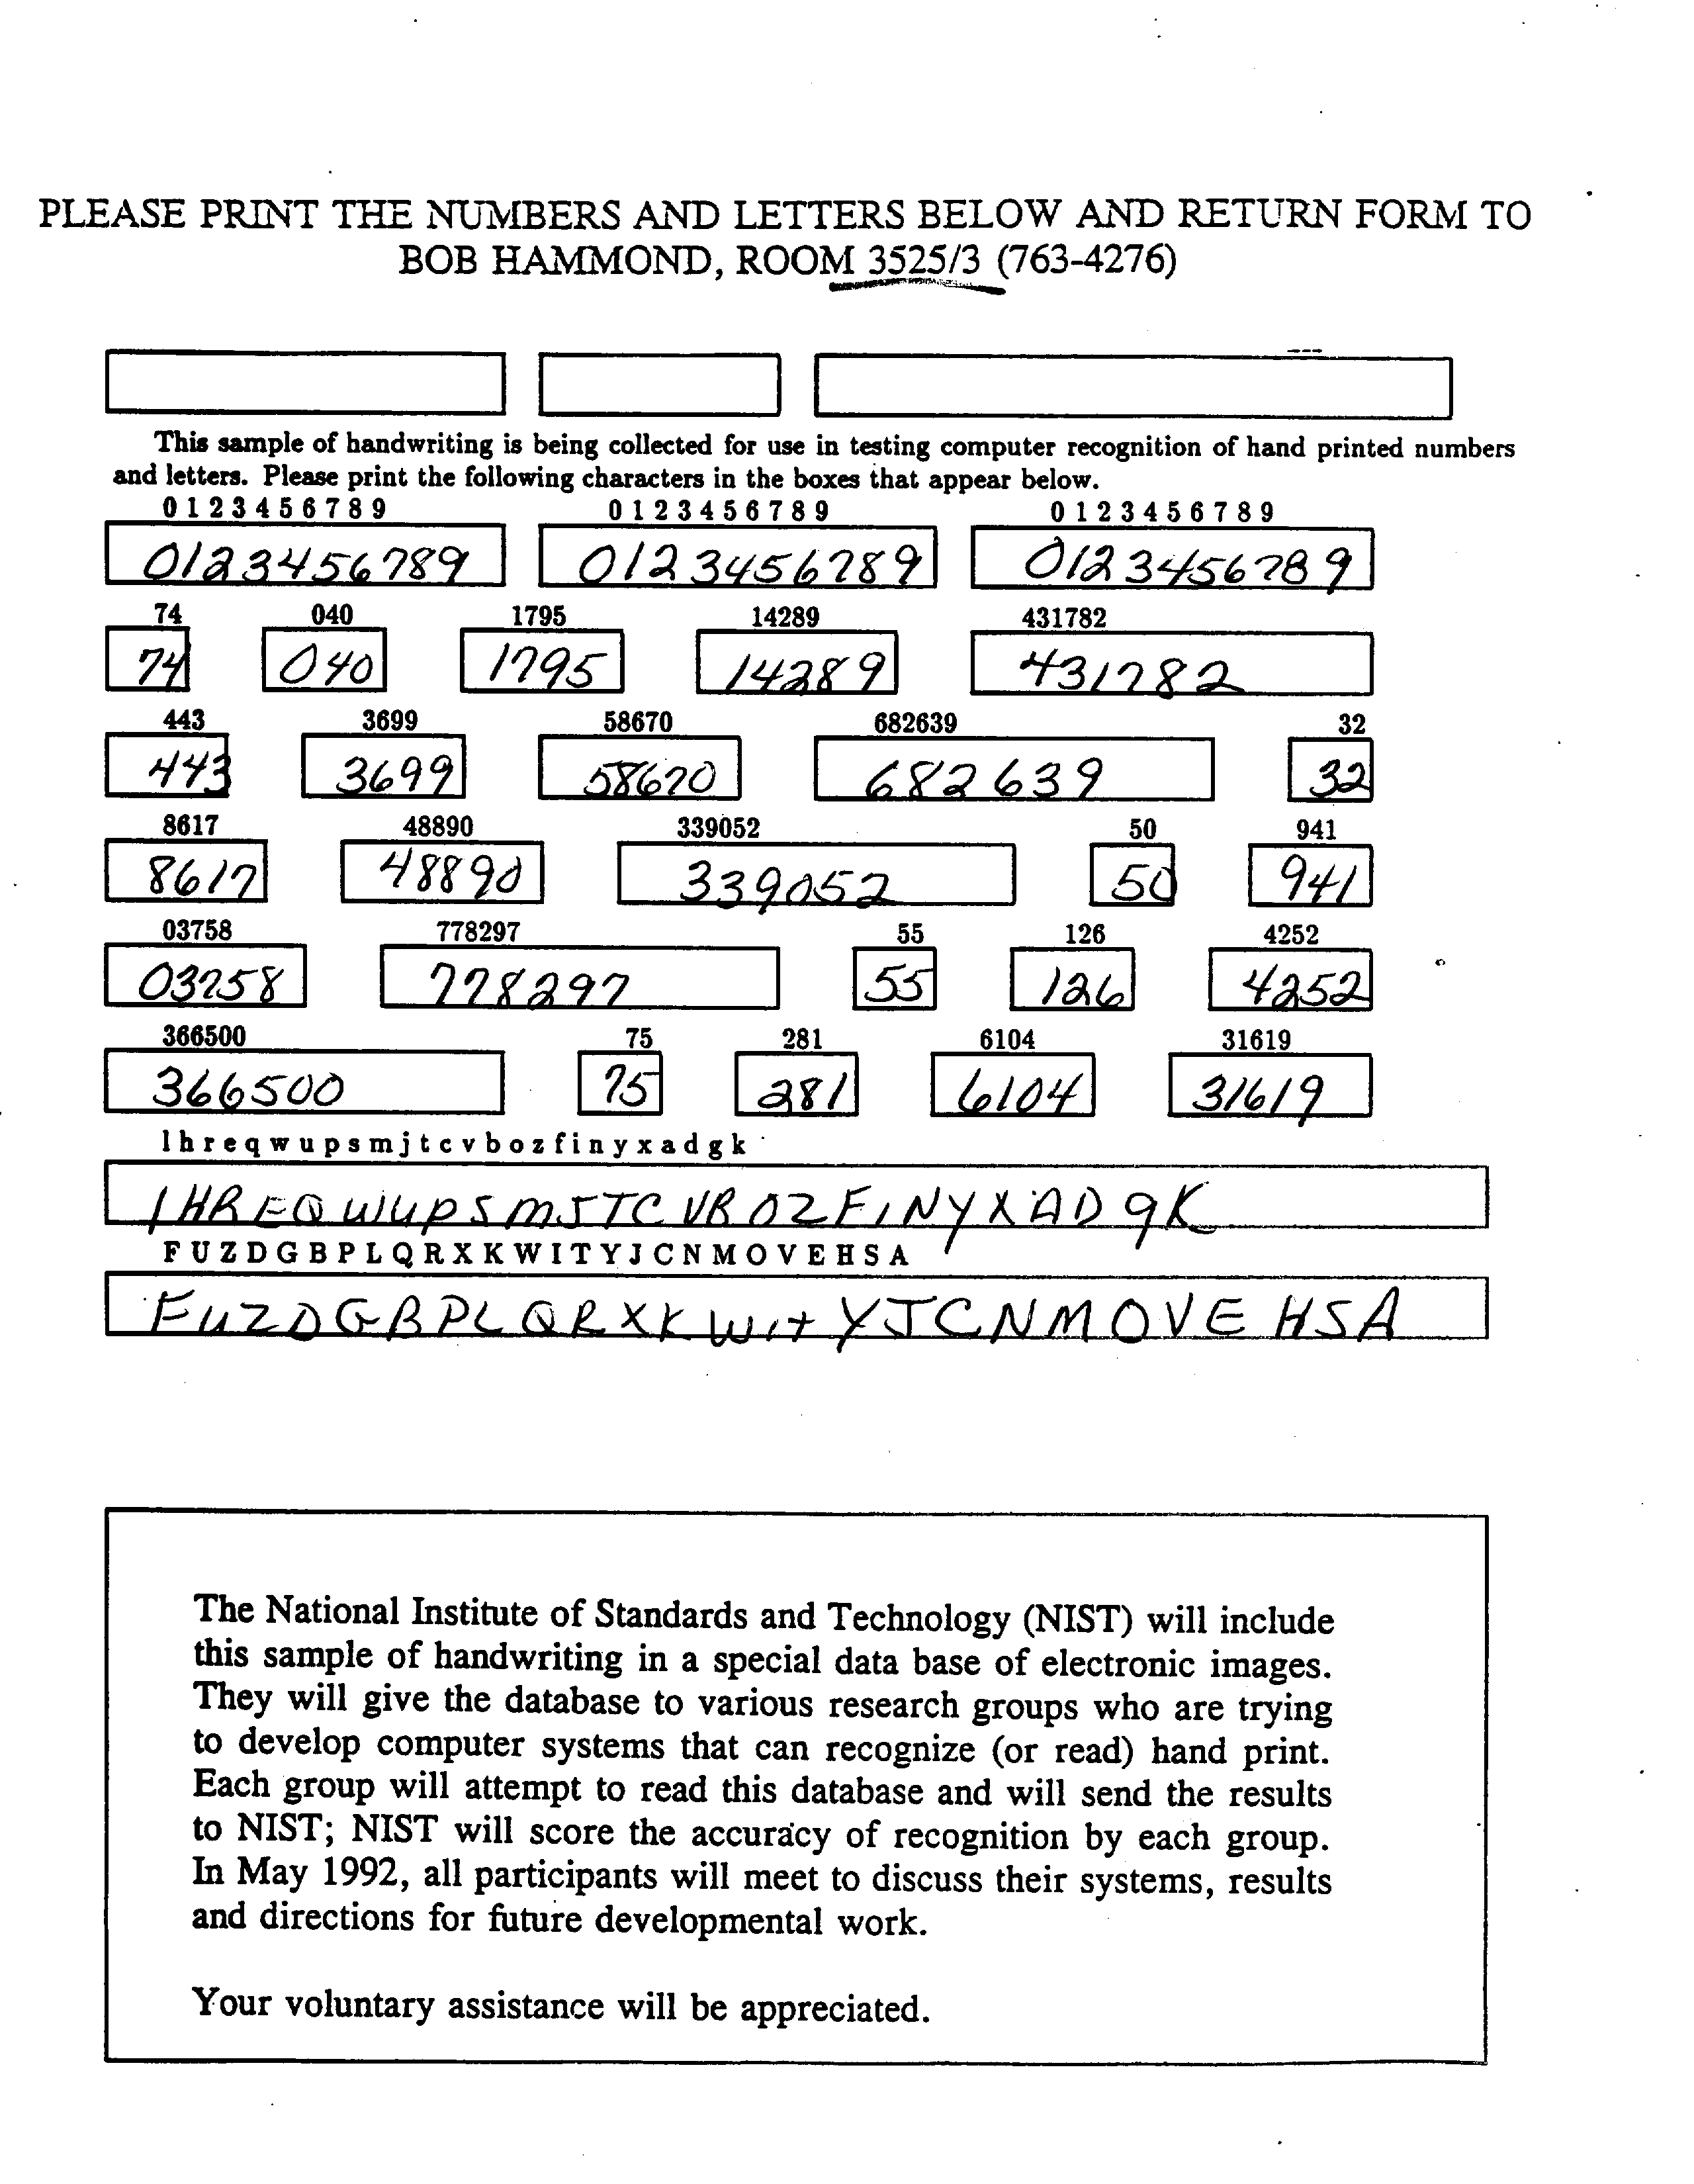 PLEASE PRINT THE NUMBERS AND LETTERS BELOW AND RETURN FORM TO
BOB HAMMOND, ROOM 3525/3 (763-4276)
This sample of handwriting is being collected for use in testing computer recognition of hand printed numbers
and letters. Please print the following characters in the boxes that appear below.
0 1 2 3 4 5 6 7 8 9 0 1 2 3 4 5 6 7 8 9 0 1 2 3 4 5 6 7 8 9
0123456789 0123456789 0123456789
74 040 1795 14289 431782
74 040 1795 14289 431782
443 3699 58670 682639 32
443 3699 58670 682639 32
8617 48890 339052 50 941
8617 48890 339052 50 941
03758 778297 55 126 4252
03758 778297 55 126 4252
366500 75 281 6104 31619
366500 75 281 6104 31619
l h r e q w u p s m j t c v b o z f i n y x a d g k
l HREQWUPSMJTCVBOZFINYXADgK
F U Z D G B P L Q R X K W I T Y J C N M O V E H S A
FUZDGBPLQRXKWitYJCNMOVEHSA
The National Institute of Standards and Technology (NIST) will include
this sample of handwriting in a special data base of electronic images.
They will give the database to various research groups who are trying
to develop computer systems that can recognize (or read) hand print.
Each group will attempt to read this database and will send the results
to NIST; NIST will score the accuracy of recognition by each group.
In May 1992, all participants will meet to discuss their systems, results
and directions for future developmental work.
Your voluntary assistance will be appreciated.